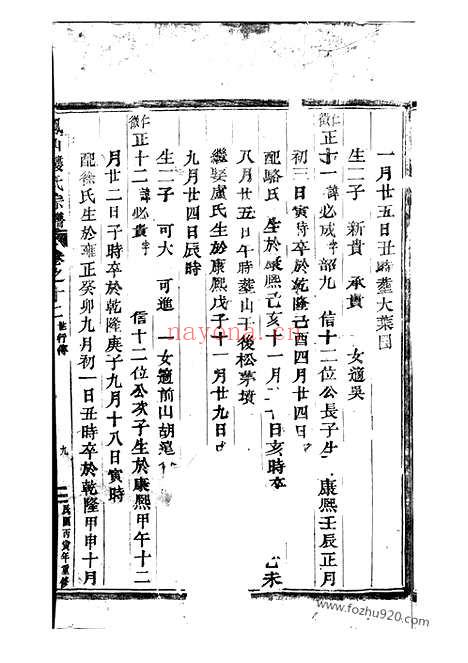 一月廿五日丑時葬大葉田
生二子 新貴 承貴 女適吳
仁徵 正十一 諱必成字韶九 信十二位公長子生 康熙壬辰正月
初三日寅時卒於乾隆己酉四月廿四日
配駱氏 生於康熙己亥 一月 日亥時卒 己未
八月廿五日午時葬山王後松茅墳
繼娶盧氏生於康熙戊子十一月廿九日
九月廿四日辰時
生二子 可大 可進 女適前山胡
仁徵 正十二 諱必貴字 信十二位公次子生於康熙甲午十二
月廿二日子時卒於乾隆庚子九月十八日寅時
配徐氏生於雍正癸卯九月初一日丑時卒於乾隆甲申十月
山 氏宗譜 卷之十二 世行傳 九 民國丙寅年重修
nayona.cn
www.fozhu920.com